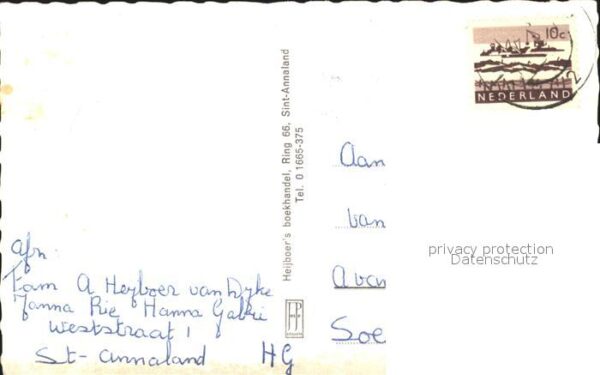 10c
NEDERLAND
Heijboer's boekhandel, Ring 66, Sint-Annaland
Tel. 0 1665-375
Aan
van
Soe
privacy protection
Datenschutz
afn.
Fam A Heyboer van Dyke
Janna Rie Hanna
Weststraat 1
St-Annaland HG